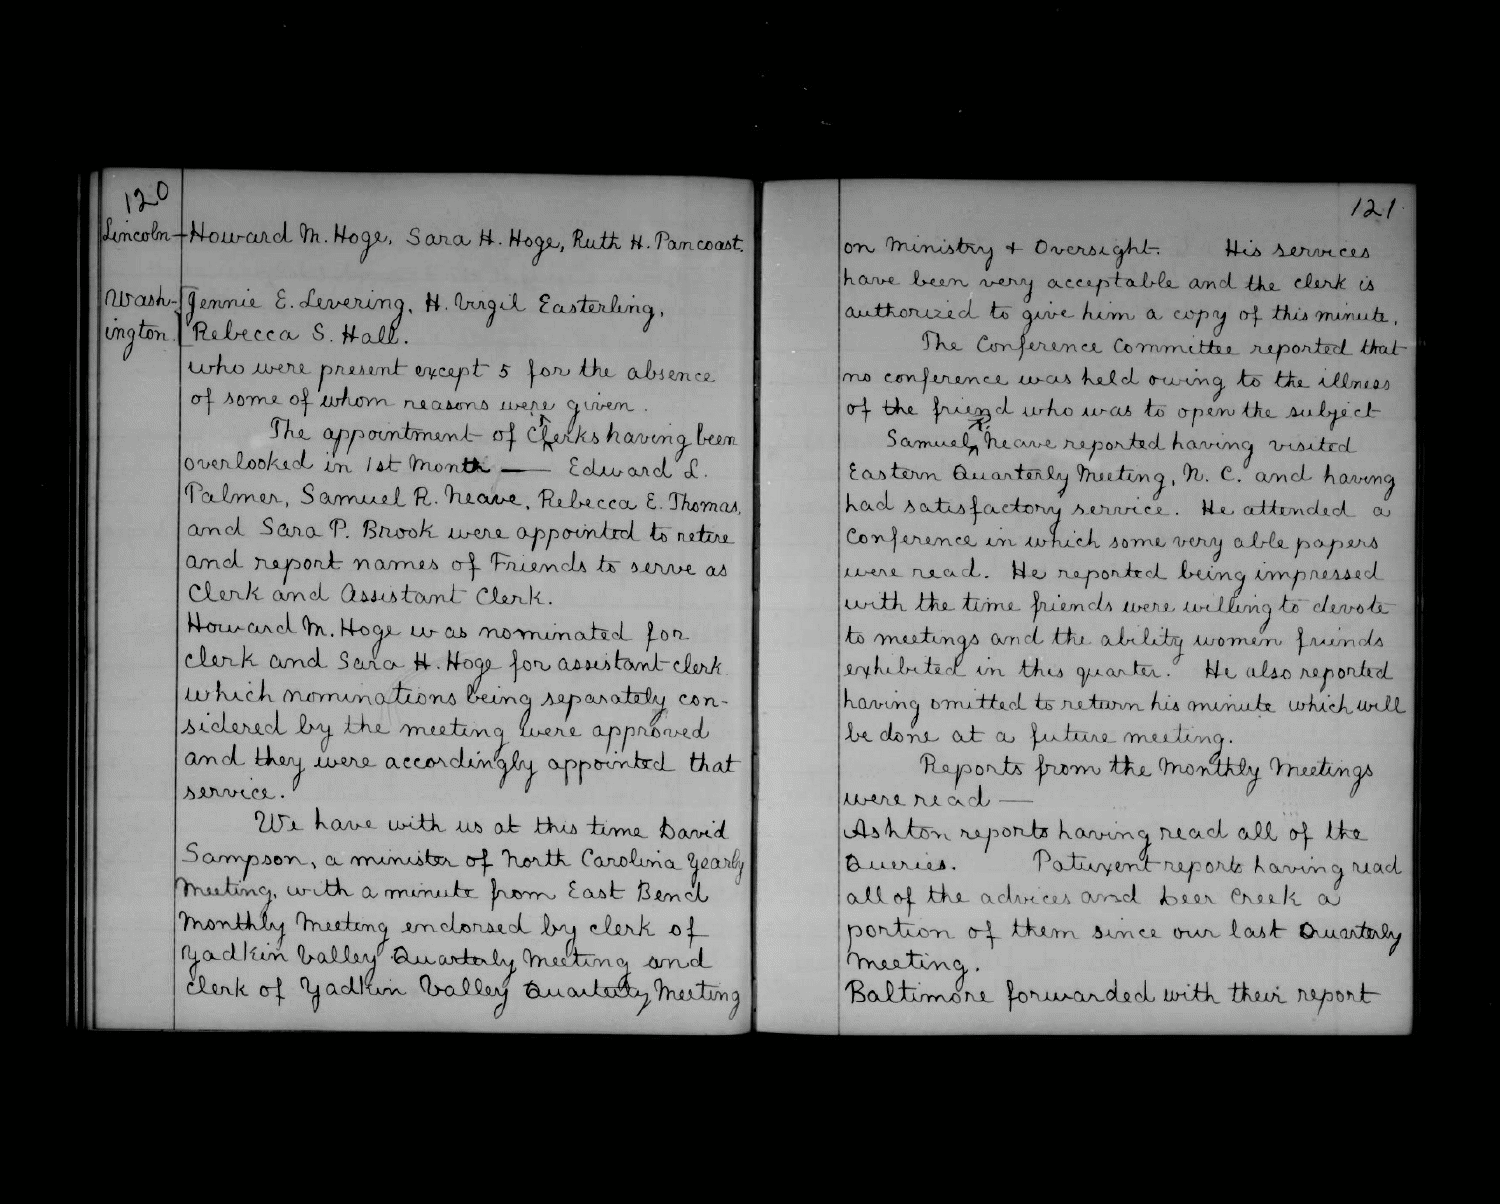 120
Lincoln - Howard M. Hoge, Sara H. Hoge, Ruth H. Pancoast.
Wash- Jennie E. Levering, H. Virgil Easterling,
ington. Rebecca S. Hall.
who were present except 5 for the absence
of some of whom reasons were given.
The appointment of Clerks having been
overlooked in 1st Month — Edward L.
Palmer, Samuel R. Neave, Rebecca E. Thomas,
and Sara P. Brook were appointed to retire
and report names of Friends to serve as
Clerk and Assistant Clerk.
Howard M. Hoge was nominated for
clerk and Sara H. Hoge for assistant clerk
which nominations being separately con-
sidered by the meeting were approved
and they were accordingly appointed that
service.
We have with us at this time David
Sampson, a minister of North Carolina Yearly
Meeting, with a minute from East Bend
Monthly Meeting endorsed by clerk of
Yadkin Valley Quarterly Meeting and
clerk of Yadkin Valley Quarterly Meeting
121
on Ministry + Oversight. His services
have been very acceptable and the clerk is
authorized to give him a copy of this minute.
The Conference Committee reported that
no conference was held owing to the illness
of the friend who was to open the subject
Samuel R. Neave reported having visited
Eastern Quarterly Meeting, N. C. and having
had satisfactory service. He attended a
Conference in which some very able papers
were read. He reported being impressed
with the time friends were willing to devote
to meetings and the ability women friends
exhibited in this quarter. He also reported
having omitted to return his minute which will
be done at a future meeting.
Reports from the Monthly Meetings
were read —
Ashton reports having read all of the
Queries. Patuxent reports having read
all of the advices and Deer Creek a
portion of them since our last Quarterly
Meeting.
Baltimore forwarded with their report